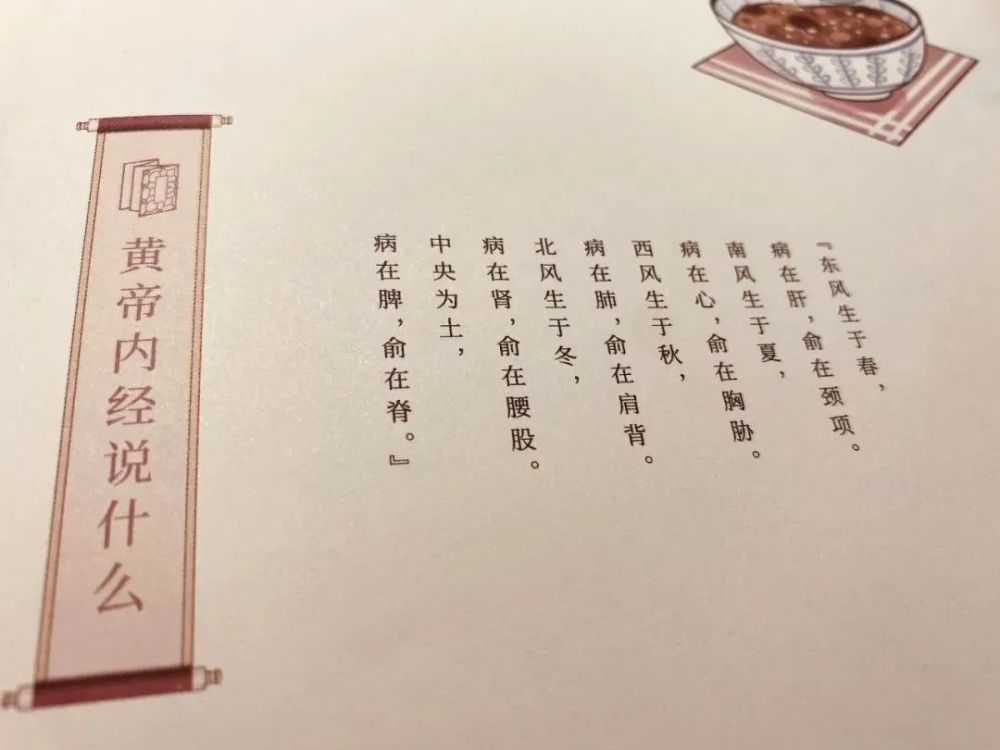 黄帝内经说什么
『东风生于春，
病在肝，俞在颈项。
南风生于夏，
病在心，俞在胸胁。
西风生于秋，
病在肺，俞在肩背。
北风生于冬，
病在肾，俞在腰股。
中央为土，
病在脾，俞在脊。』